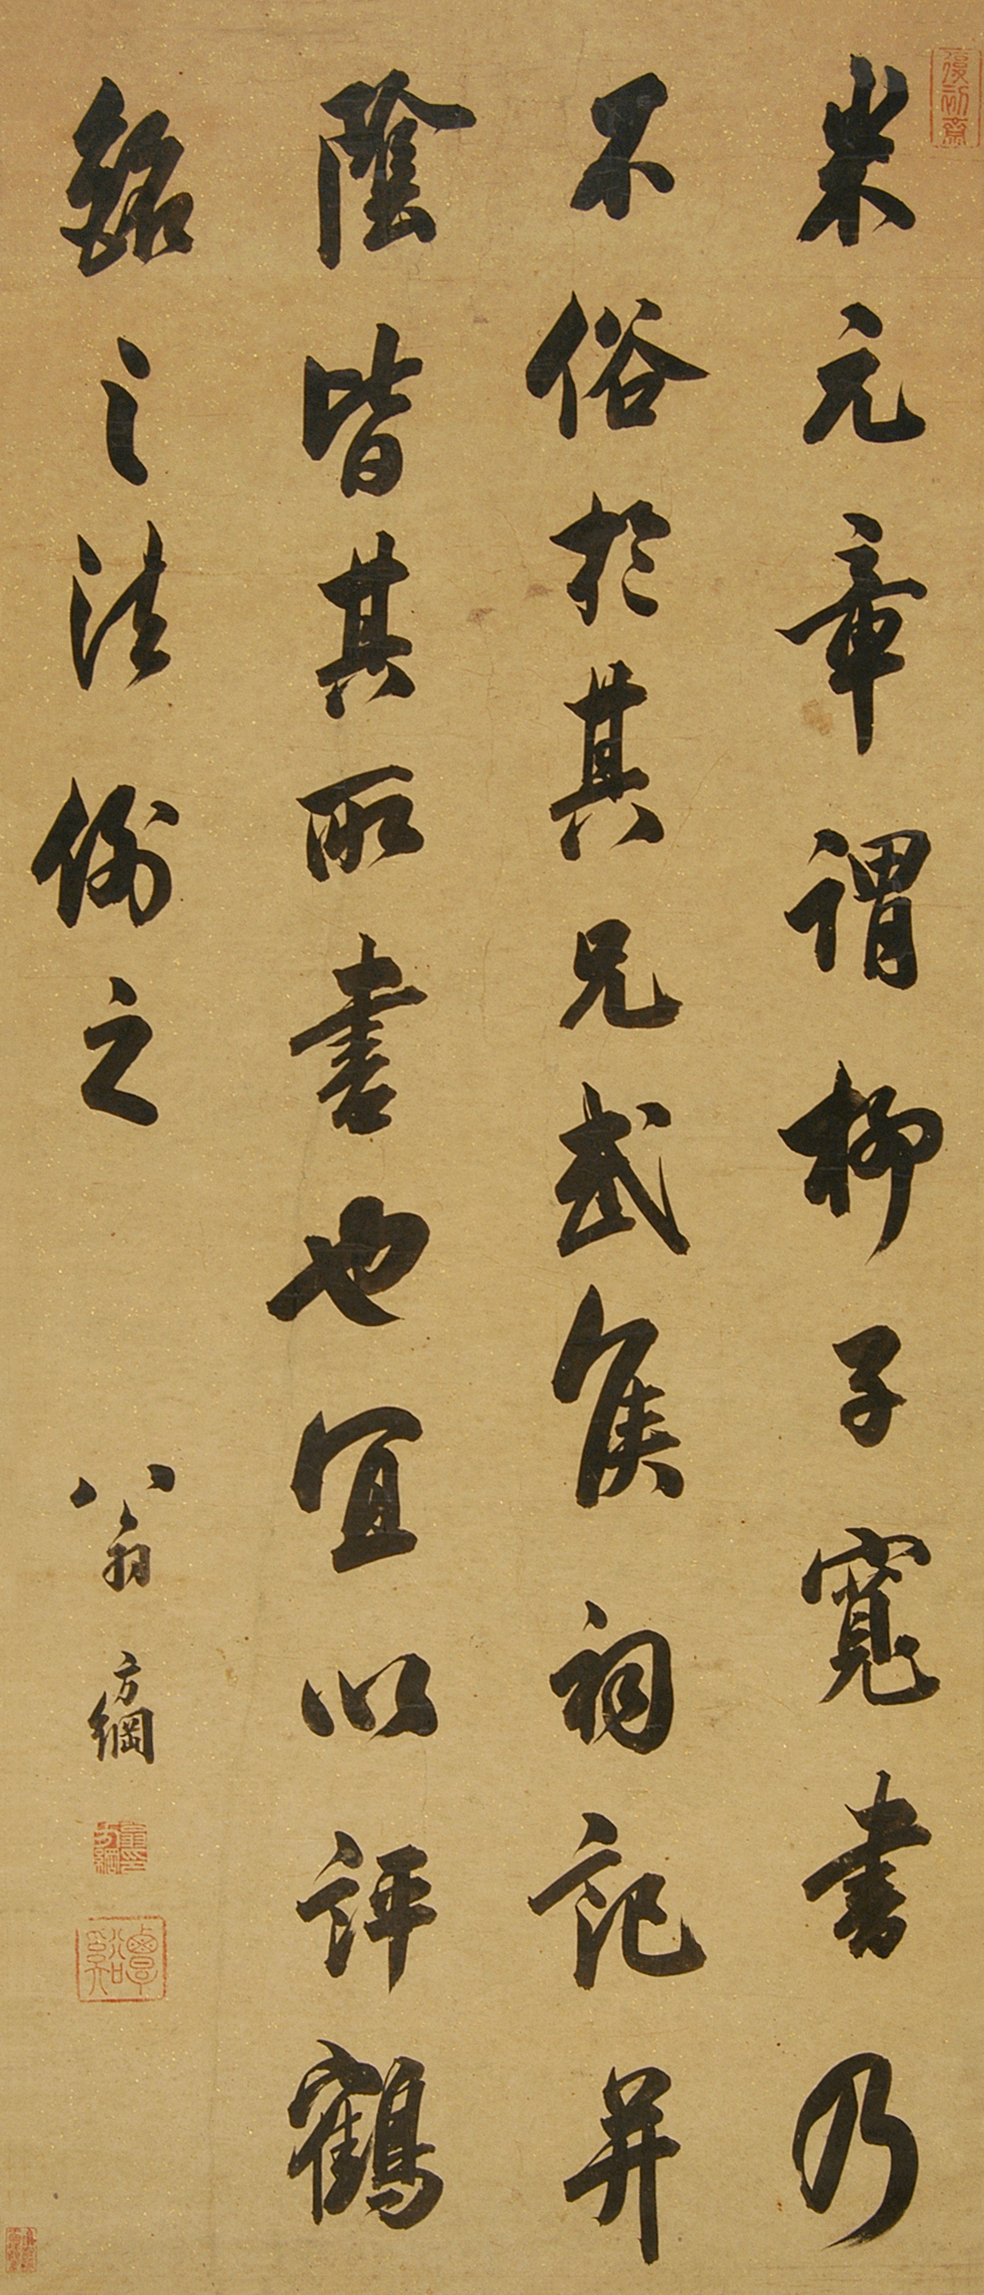 米元章謂柳子寬書乃
不俗於其兄武侯祠記并
陰皆其所書也宜以評鶴
銘之法例之
翁方綱
復初齋
覃溪